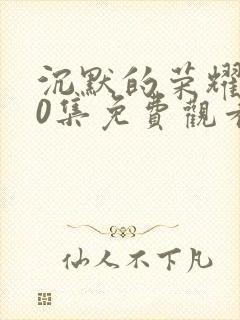 沉默的荣耀
0集免費觀看
仙人不下凡